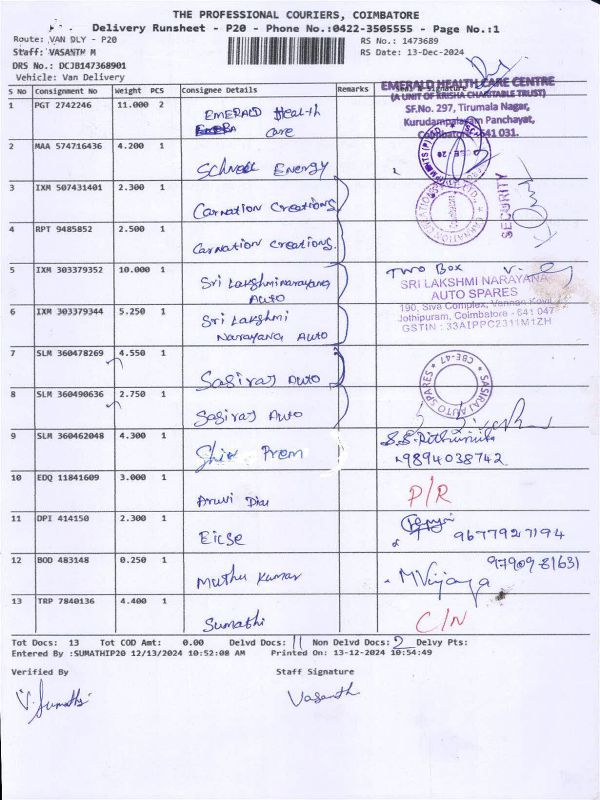 THE PROFESSIONAL COURIERS, COIMBATORE
Delivery Runsheet - P20 - Phone No.:0422-3505555 - Page No.:1
Route: VAN DLY - P20
RS No.: 1473689
Staff: VASANTH M
RS Date: 13-Dec-2024
DRS No.: DCJB147368901
Vehicle: Van Delivery
S No Consignment No Weight PCS Consignee Details Remarks
1 PGT 2742246 11.000 2 EMERALD Health care
EMERALD HEALTH CARE CENTRE
(A UNIT OF KRISHA CHARITABLE TRUST)
SF.No. 297, Tirumala Nagar,
Kurudampalayam Panchayat,
Coimbatore - 641 031.
2 MAA 574716436 4.200 1 Schnell Energy
3 IXM 507431401 2.300 1 Carnation Creations
SECURITY
4 RPT 9485852 2.500 1 Carnation Creations.
5 IXM 303379352 10.000 1 Sri Lakshminarayana Auto
Two Box
SRI LAKSHMI NARAYANA
AUTO SPARES
190, Siva Complex, Vannan Kovil
Jothipuram, Coimbatore - 641 047
GSTIN : 33AIPPC2311M1ZH
6 IXM 303379344 5.250 1 Sri Lakshmi Narayana Auto
7 SLM 360478269 4.550 1 Sasiraj Auto
SASIRAJ AUTO SPARES * CBE-47 *
8 SLM 360490636 2.750 1 Sasiraj Auto
9 SLM 360462048 4.300 1 Shiv Prem
9894038742
10 EDQ 11841609 3.000 1
P/R
11 DPI 414150 2.300 1 Eicse
9677927194
12 BOD 483148 0.250 1 Muthu Kumar
M Vijaya
97909-81631
13 TRP 7840136 4.400 1 Sumathi
C/N
Tot Docs: 13 Tot COD Amt: 0.00 Delvd Docs: 11 Non Delvd Docs: 2 Delvy Pts:
Entered By :SUMATHIP20 12/13/2024 10:52:08 AM Printed On: 13-12-2024 10:54:49
Verified By Staff Signature
V. Sumathi Vasanth